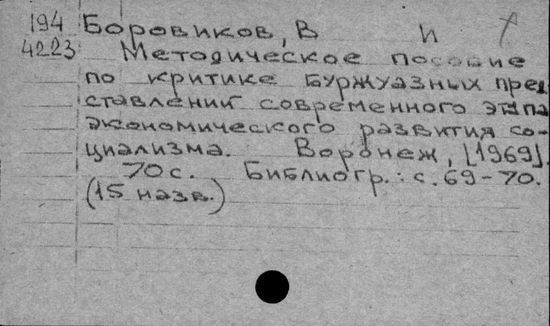 194 Боровиков, В И
4223 Методическое пособие
по критике буржуазных пред
ставлений современного этапа
экономического развития со-
циализма. Воронеж, [1969].
70 с. Библиогр.: с. 69-70.
(15 назв.)